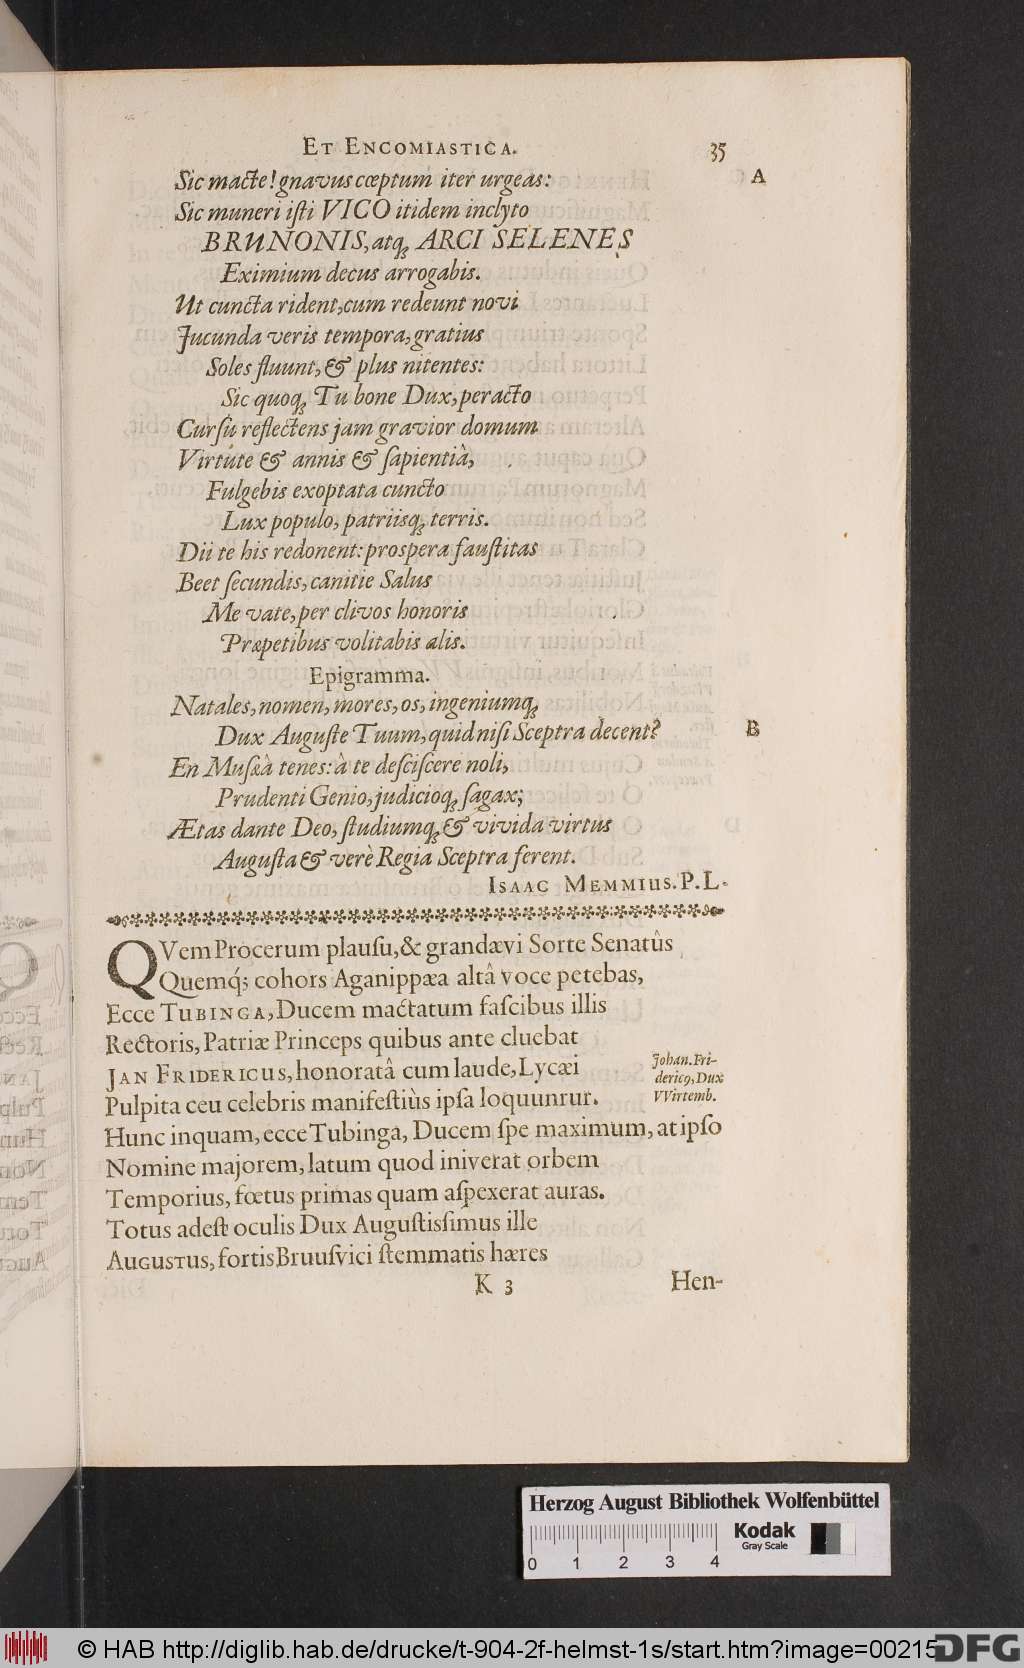 ET ENCOMIASTICA. 35
Sic macte! gnavus cœptum iter urgeas: A
Sic muneri iſti VICO itidem inclyto
BRUNONIS, atq; ARCI SELENES
Eximium decus arrogabis.
Ut cuncta rident, cum redeunt novi
Jucunda veris tempora, gratius
Soles fluunt, & plus nitentes:
Sic quoq; Tu bone Dux, peracto
Curſu reflectens jam gravior domum
Virtúte & annis & ſapientiâ,
Fulgebis exoptata cuncto
Lux populo, patriisq; terris.
Dii te his redonent: proſpera fauſtitas
Beet ſecundis, canitie Salus
Me vate, per clivos honoris
Præpetibus volitabis alis.
Epigramma.
Natales, nomen, mores, os, ingeniumq;
Dux Auguſte Tuum, quid niſi Sceptra decent? B
En Muſæà tenes: à te deſciſcere noli,
Prudenti Genio, judicioq; ſagax;
Ætas dante Deo, ſtudiumq; & vivida virtus
Auguſta & verè Regia Sceptra ferent.
ISAAC MEMMIUS. P. L.
QVem Procerum plauſu, & grandævi Sorte Senatûs
Quemq́; cohors Aganippæa altâ voce petebas,
Ecce TUBINGA, Ducem mactatum faſcibus illis
Rectoris, Patriæ Princeps quibus ante cluebat
JAN FRIDERICUS, honoratâ cum laude, Lycæi
Johan. Fri-
dericꝰ, Dux
VVirtemb.
Pulpita ceu celebris manifeſtiùs ipſa loquunrur.
Hunc inquam, ecce Tubinga, Ducem ſpe maximum, at ipſo
Nomine majorem, latum quod iniverat orbem
Temporius, fœtus primas quam aſpexerat auras.
Totus adeſt oculis Dux Auguſtiſſimus ille
AUGUSTUS, fortis Bruuſvici ſtemmatis hæres
K 3 Hen-
Herzog August Bibliothek Wolfenbüttel
Kodak
Gray Scale
0 1 2 3 4
© HAB http://diglib.hab.de/drucke/t-904-2f-helmst-1s/start.htm?image=00215
DFG